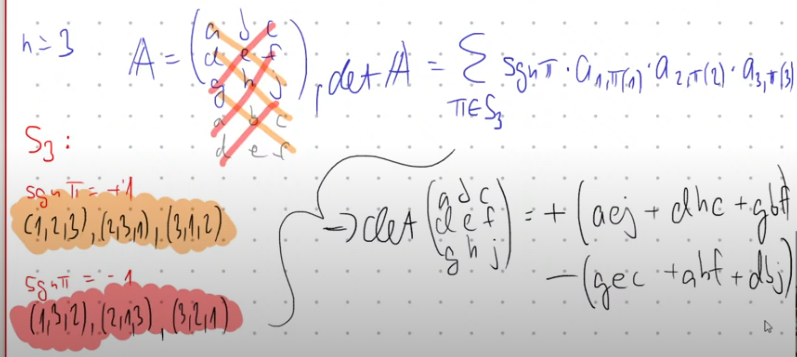 n=3
A = (a b c
d e f
g h j)
a b c
d e f
, det A = Σ sgn π · a₁,π(1) · a₂,π(2) · a₃,π(3)
π∈S₃
S₃:
sgn π = +1
(1,2,3), (2,3,1), (3,1,2)
sgn π = -1
(1,3,2), (2,1,3), (3,2,1)
⇒ det (a b c
d e f
g h j) = + (aej + dhc + gbf)
- (gec + ahf + dbj)